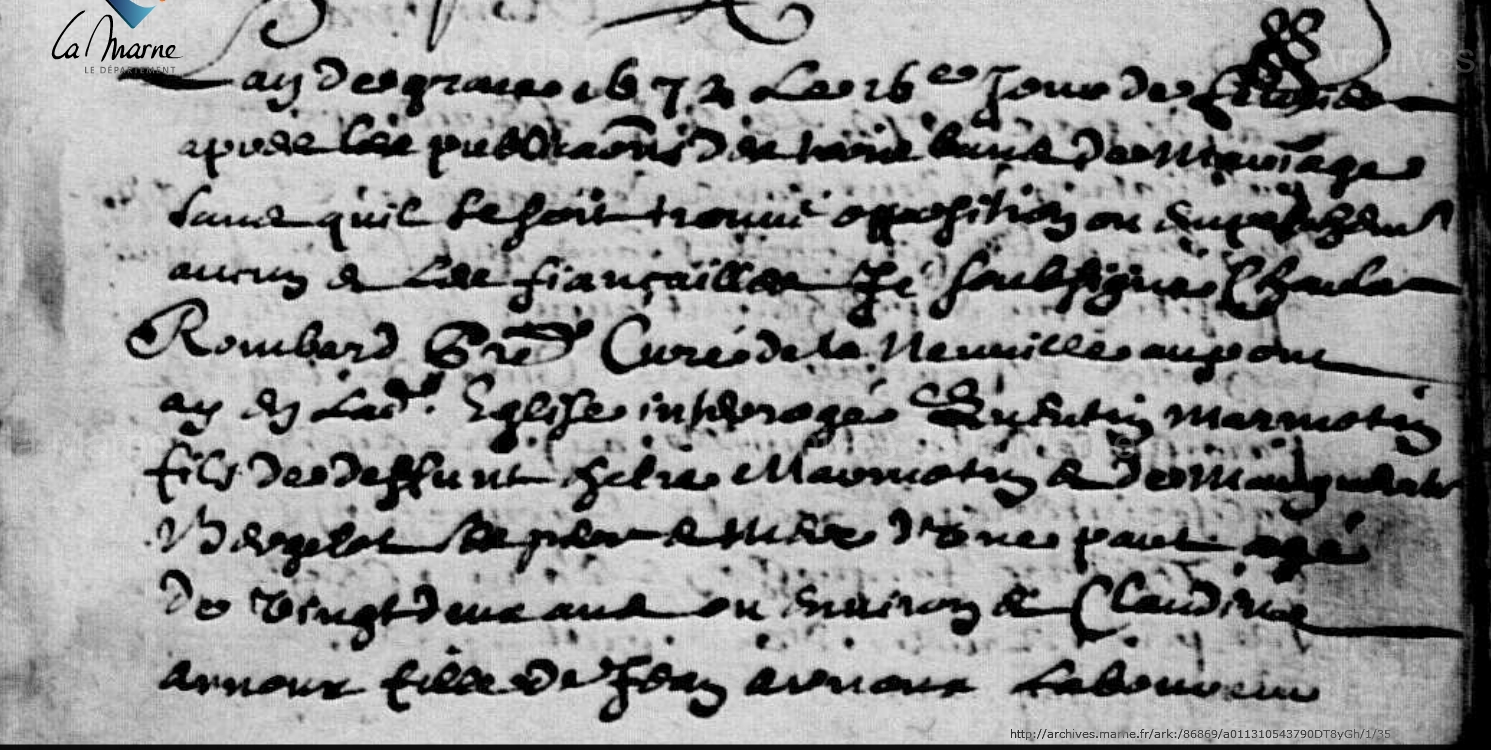 La Marne
LE DÉPARTEMENT
Lan de grace 1672 Le 16e Jour de
apres les publicaõns de trois bans de Mariage
sans quil se soit trouué opposition ou Empeschemt
aucun & Les fiançailles Jé soubsigné Charles
Rombard Pre Curé de la Neuuille au pont
ay en Lade Eglise interogé Quentin Marmotin
fils de deffunt Marmotin & de Marguerite
Bergelot Ses pere & Mere d'Vne part agé
de Vingt deux ans ou Enuiron & Claudine
arnoux fille de Jean arnoux Laboureur
http://archives.marne.fr/ark:/86869/a011310543790DT8yGh/1/35